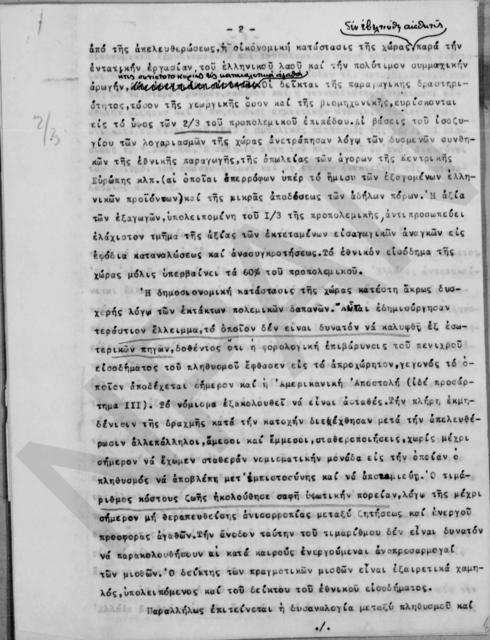 - 2 -
δέν ἐβελτιώθη αἰσθητῶς
ἀπό τῆς ἀπελευθερώσεως, ἡ οἰκονομική κατάστασις τῆς χώρας, παρά τήν
ἐντατικήν ἐργασίαν, τοῦ ἑλληνικοῦ λαοῦ καί τήν πολύτιμον συμμαχικήν
ἀρωγήν, Οἱ δεῖκται τῆς παραγωγικῆς δραστηρι-
ότητος, τόσον τῆς γεωργικῆς ὅσον καί τῆς βιομηχανικῆς, εὑρίσκονται
εἰς τό ὕψος τῶν 2/3 τοῦ προπολεμικοῦ ἐπιπέδου. Αἱ βάσεις τοῦ ἰσοζυ-
2/3
γίου τῶν λογαριασμῶν τῆς χώρας ἀνετράπησαν λόγῳ τῶν δυσμενῶν συνθη-
κῶν τῆς ἐθνικῆς παραγωγῆς, τῆς ἀπωλείας τῶν ἀγορῶν τῆς Κεντρικῆς
Εὐρώπης κλπ. (αἱ ὁποῖαι ἀπερρόφων ὑπέρ τό ἥμισυ τῶν ἐξαγομένων ἑλλη-
νικῶν προϊόντων) καί τῆς μικρᾶς ἀποδόσεως τῶν ἀδήλων πόρων. Ἡ ἀξία
τῶν ἐξαγωγῶν, ὑπολειπομένη τοῦ I/3 τῆς προπολεμικῆς, ἀντιπροσωπεύει
ἐλάχιστον τμῆμα τῆς ἀξίας τῶν ἐκτεταμένων εἰσαγωγικῶν ἀναγκῶν εἰς
ἐφόδια καταναλώσεως καί ἀνασυγκροτήσεως. Τό ἐθνικόν εἰσόδημα τῆς
χώρας μόλις ὑπερβαίνει τά 60% τοῦ προπολεμικοῦ.
Ἡ δημοσιονομική κατάστασις τῆς χώρας κατέστη ἄκρως δυσ-
χερής λόγῳ τῶν ἐκτάκτων πολεμικῶν δαπανῶν. Αὗται ἐδημιούργησαν
τεράστιον ἔλλειμμα, τό ὁποῖον δέν εἶναι δυνατόν νά καλυφθῇ ἐξ ἐσω-
τερικῶν πηγῶν, δοθέντος ὅτι ἡ φορολογική ἐπιβάρυνσις τοῦ πενιχροῦ
εἰσοδήματος τοῦ πληθυσμοῦ ἔφθασεν εἰς τό ἀπροχώρητον, γεγονός τό ὁ-
ποῖον ἀποδέχεται σήμερον καί ἡ Ἀμερικανική Ἀποστολή (ἰδέ προσάρ-
τημα III). Τό νόμισμα ἐξακολουθεῖ νά εἶναι ἀσταθές. Τήν πλήρη ἐκμη-
δένισιν τῆς δραχμῆς κατά τήν κατοχήν διεδέχθησαν μετά τήν ἀπελευθέ-
ρωσιν ἀλλεπάλληλοι, ἄμεσοι καί ἔμμεσοι, σταθεροποιήσεις, χωρίς μέχρι
σήμερον νά ἔχωμεν σταθεράν νομισματικήν μονάδα εἰς τήν ὁποίαν ὁ
πληθυσμός νά ἀποβλέπῃ μετ' ἐμπιστοσύνης καί νά ἀποταμιεύῃ. Ὁ τιμά-
ριθμος κόστους ζωῆς ἠκολούθησε σαφῆ ὑψωτικήν πορείαν, λόγῳ τῆς μέχρι
σήμερον μή θεραπευθείσης ἀνισορροπίας μεταξύ ζητήσεως καί ἐνεργοῦ
προσφορᾶς ἀγαθῶν. Τήν ἄνοδον ταύτην τοῦ τιμαρίθμου δέν εἶναι δυνατόν
νά παρακολουθήσουν αἱ κατά καιρούς ἐνεργούμεναι ἀναπροσαρμογαί
τῶν μισθῶν. Ὁ δείκτης τῶν πραγματικῶν μισθῶν εἶναι ἐξαιρετικά χαμη-
λός, ὑπολειπόμενος καί τοῦ δείκτου τοῦ ἐθνικοῦ εἰσοδήματος.
Παραλλήλως ἐπιτείνεται ἡ δυσαναλογία μεταξύ πληθυσμοῦ καί
./.